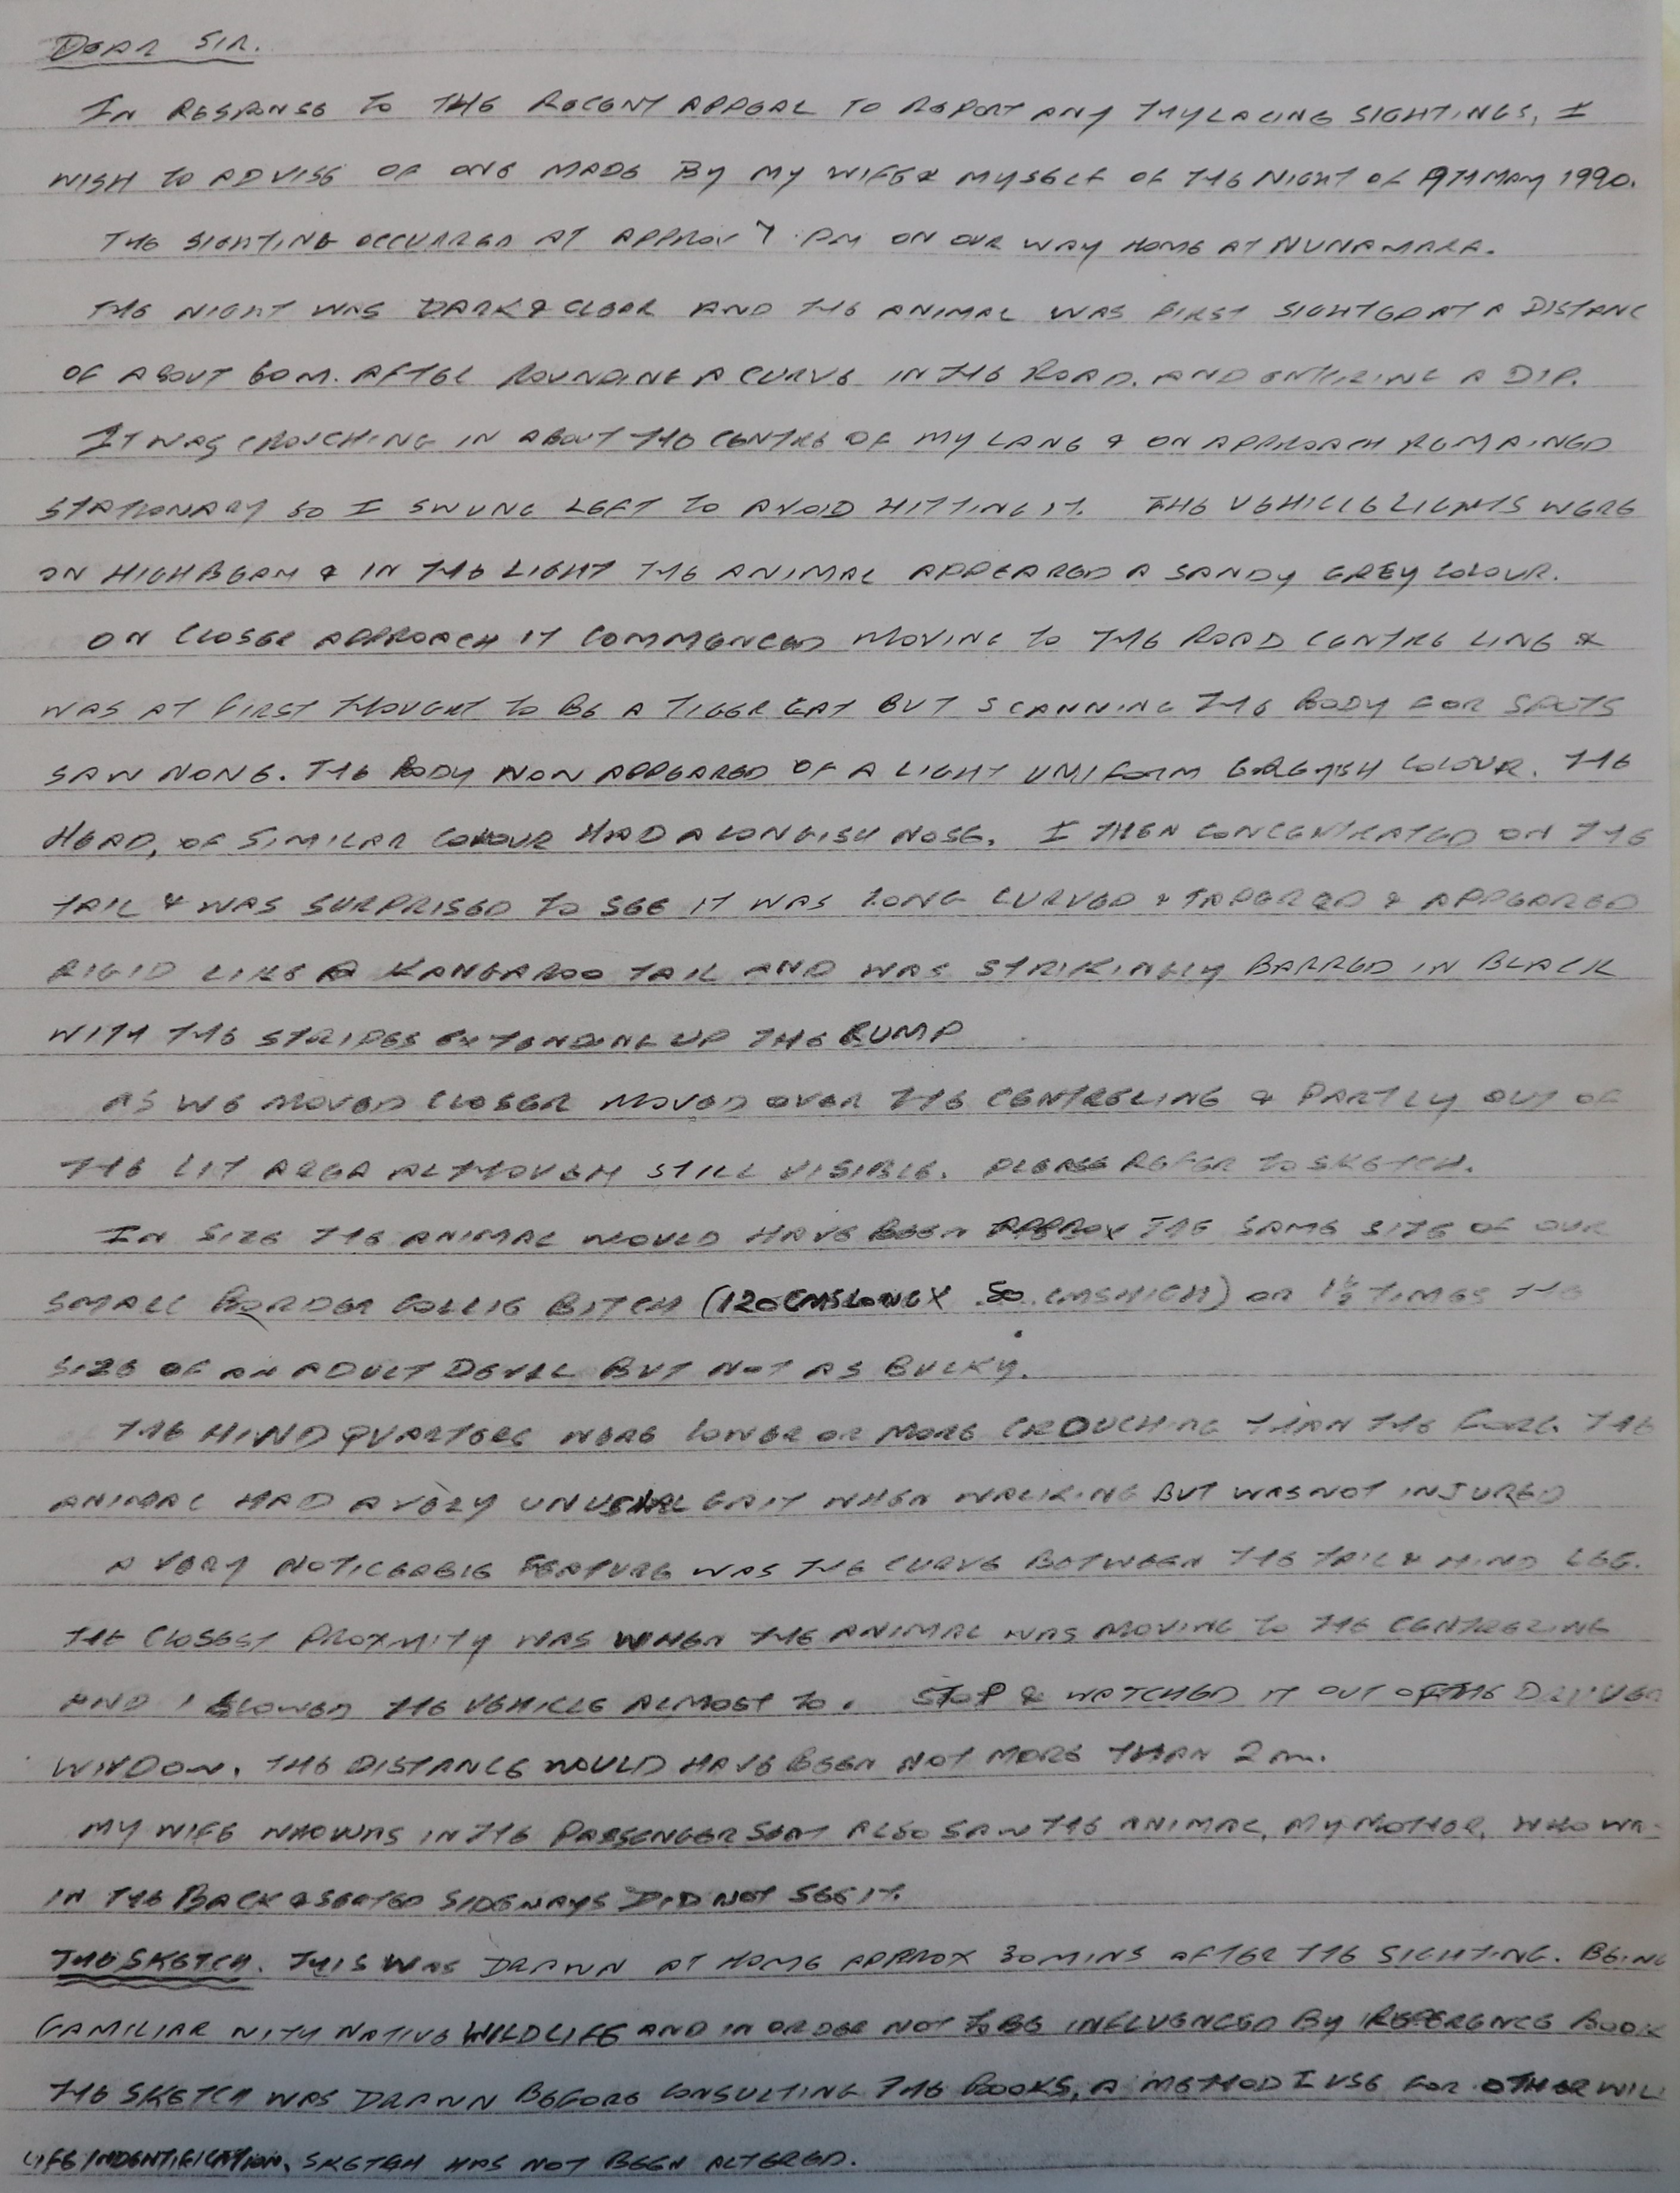 DEAR SIR.
IN RESPONSE TO THE RECENT APPEAL TO REPORT ANY THYLACINE SIGHTINGS, I
WISH TO ADVISE OF ONE MADE BY MY WIFE & MYSELF OF THE NIGHT OF 9TH MAY 1990.
THE SIGHTING OCCURRED AT APPROX 7 PM ON OUR WAY HOME AT NUNAMARA.
THE NIGHT WAS DARK & CLEAR AND THE ANIMAL WAS FIRST SIGHTED AT A DISTANC
OF ABOUT 60M. AFTER ROUNDING A CURVE IN THE ROAD. AND ENTERING A DIP.
IT WAS CROUCHING IN ABOUT THE CENTRE OF MY LANE & ON APPROACH REMAINED
STATIONARY SO I SWUNG LEFT TO AVOID HITTING IT. THE VEHICLE LIGHTS WERE
ON HIGH BEAM & IN THE LIGHT THE ANIMAL APPEARED A SANDY GREY COLOUR.
ON CLOSER APPROACH IT COMMENCED MOVING TO THE ROAD CENTRE LINE &
WAS AT FIRST THOUGHT TO BE A TIGER CAT BUT SCANNING THE BODY FOR SPOTS
SAW NONE. THE BODY NOW APPEARED OF A LIGHT UNIFORM GREYISH COLOUR. THE
HEAD, OF SIMILAR COLOUR HAD A LONGISH NOSE. I THEN CONCENTRATED ON THE
TAIL & WAS SURPRISED TO SEE IT WAS LONG CURVED & TAPERED & APPEARED
RIGID LIKE A KANGAROO TAIL AND WAS STRIKINGLY BARRED IN BLACK
WITH THE STRIPES EXTENDING UP THE RUMP
AS WE MOVED CLOSER MOVED OVER THE CENTRELINE & PARTLY OUT OF
THE LIT AREA ALTHOUGH STILL VISIBLE. PLEASE REFER TO SKETCH.
IN SIZE THE ANIMAL WOULD HAVE BEEN APPROX THE SAME SIZE OF OUR
SMALL BORDER COLLIE BITCH (120 CMS LONG X 50 CMS HIGH) OR 1½ TIMES THE
SIZE OF AN ADULT DEVIL BUT NOT AS BULKY.
THE HIND QUARTERS WERE LOWER OR MORE CROUCHING THAN THE FORE. THE
ANIMAL HAD A VERY UNUSUAL GAIT WHEN WALKING BUT WAS NOT INJURED
A VERY NOTICEABLE FEATURE WAS THE CURVE BETWEEN THE TAIL & HIND LEG.
THE CLOSEST PROXMITY WAS WHEN THE ANIMAL WAS MOVING TO THE CENTRELINE
AND I SLOWED THE VEHICLE ALMOST TO. STOP & WATCHED IT OUT OF THE DRIVER
WINDOW. THE DISTANCE WOULD HAVE BEEN NOT MORE THAN 2 m.
MY WIFE WHO WAS IN THE PASSENGER SEAT ALSO SAW THE ANIMAL. MY MOTHER, WHO WA
IN THE BACK & SEATED SIDEWAYS DID NOT SEE IT.
THE SKETCH. THIS WAS DRAWN AT HOME APPROX 30 MINS AFTER THE SIGHTING. BEING
FAMILIAR WITH NATIVE WILDLIFE AND IN ORDER NOT TO BE INFLUENCED BY REFERENCE BOOK
THE SKETCH WAS DRAWN BEFORE CONSULTING THE BOOKS, A METHOD I USE FOR OTHER WIL
LIFE INDENTIFICATION. SKETCH HAS NOT BEEN ALTERED.